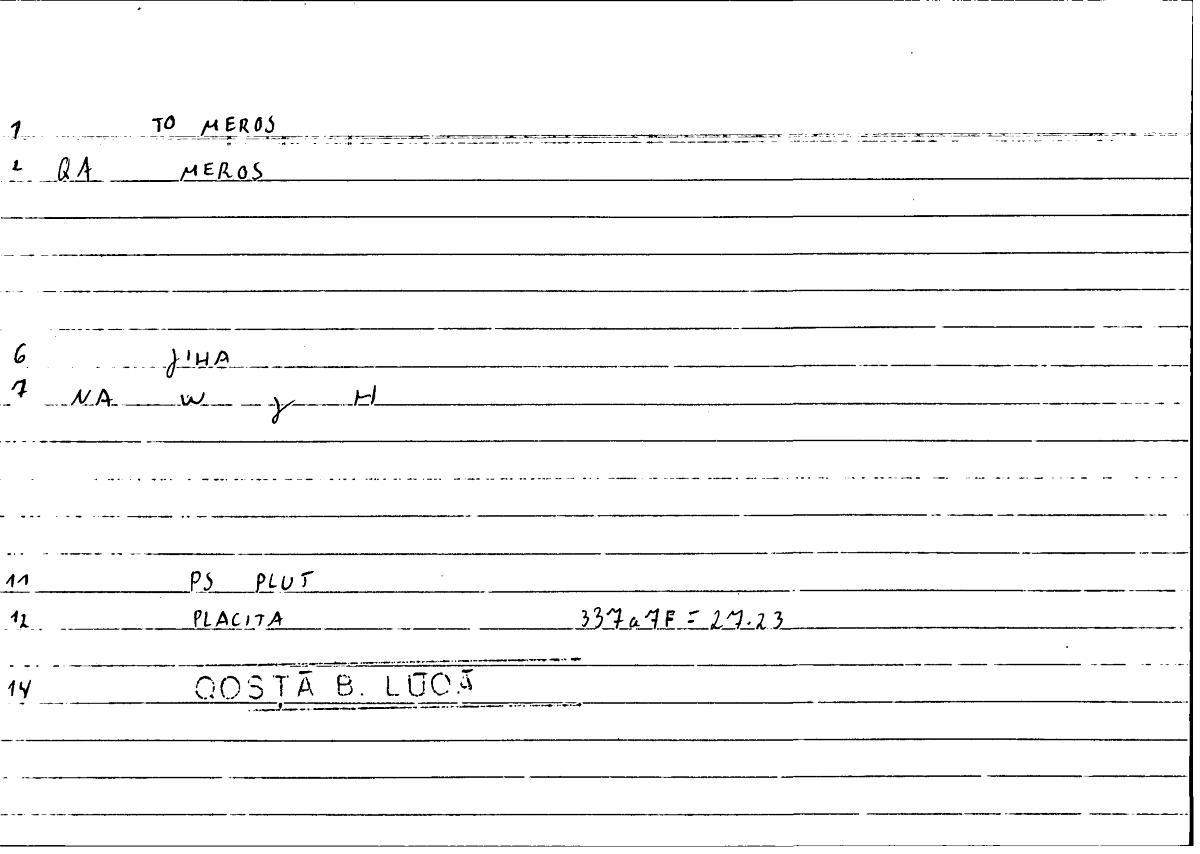 1 TO MEROS
2 QA MEROS
6 ǧIHA
7 NA w ǧ H
11 PS PLUT
12 PLACITA 337a7F = 27.23
14 QOSṬĀ B. LŪQĀ